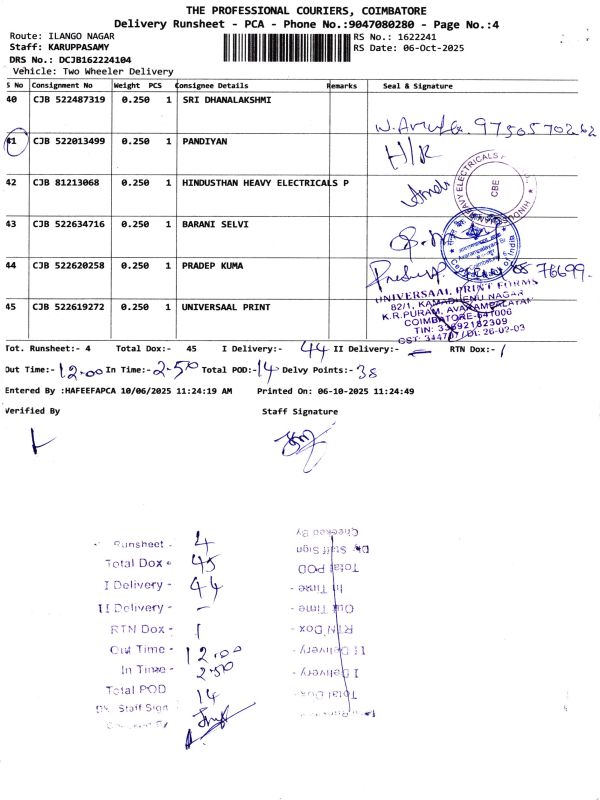 THE PROFESSIONAL COURIERS, COIMBATORE
Delivery Runsheet - PCA - Phone No.:9047080280 - Page No.:4
Route: ILANGO NAGAR RS No.: 1622241
Staff: KARUPPASAMY RS Date: 06-Oct-2025
DRS No.: DCJB162224104
Vehicle: Two Wheeler Delivery
S No Consignment No Weight PCS Consignee Details Remarks Seal & Signature
40 CJB 522487319 0.250 1 SRI DHANALAKSHMI
9750570262
41 CJB 522013499 0.250 1 PANDIYAN
H/R
42 CJB 81213068 0.250 1 HINDUSTHAN HEAVY ELECTRICALS P
CBE
43 CJB 522634716 0.250 1 BARANI SELVI
44 CJB 522620258 0.250 1 PRADEP KUMA
76699
45 CJB 522619272 0.250 1 UNIVERSAAL PRINT
UNIVERSAAL PRINT FORMS
82/1, KAMADHENU NAGAR
K.R.PURAM, AVARAMPALAYAM
COIMBATORE-641006
TIN: 33692182309
Tot. Runsheet:- 4 Total Dox:- 45 I Delivery:- 44 II Delivery:- - RTN Dox:- 1
Out Time:- 12.00 In Time:- 2.50 Total POD:- 14 Delvy Points:- 38
Entered By :HAFEEFAPCA 10/06/2025 11:24:19 AM Printed On: 06-10-2025 11:24:49
Verified By Staff Signature
Runsheet - 4
Total Dox - 45
I Delivery - 44
II Delivery - -
RTN Dox - 1
Out Time - 12.00
In Time - 2.50
Total POD 14
Staff Sign
Checked By
Checked By
Dly Staff Sign
Total POD
In Time -
Out Time -
RTN Dox -
II Delivery -
I Delivery -
Total Dox -